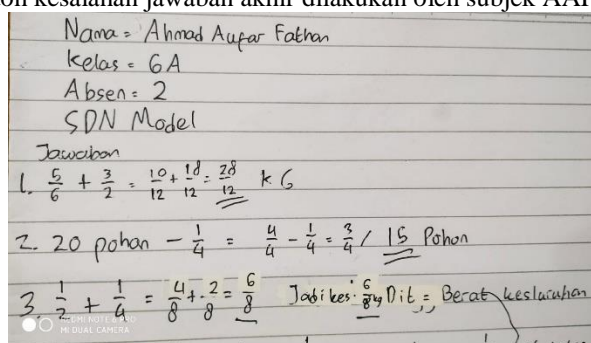 on kesalahan jawaban akhir dilakukan oleh subjek AAF
Nama = Ahmad Aufar Fathan
Kelas = 6A
Absen = 2
SDN Model
Jawaban
1. 5/6 + 3/2 = 10/12 + 18/12 = 28/12 k 6
2. 20 pohon - 1/4 = 4/4 - 1/4 = 3/4 / 15 Pohon
3. 1/2 + 1/4 = 4/8 + 2/8 = 6/8 Jadi kes: 6/8 kg Dit = Berat kesluruhan
REDMI NOTE 8 PRO
MI DUAL CAMERA